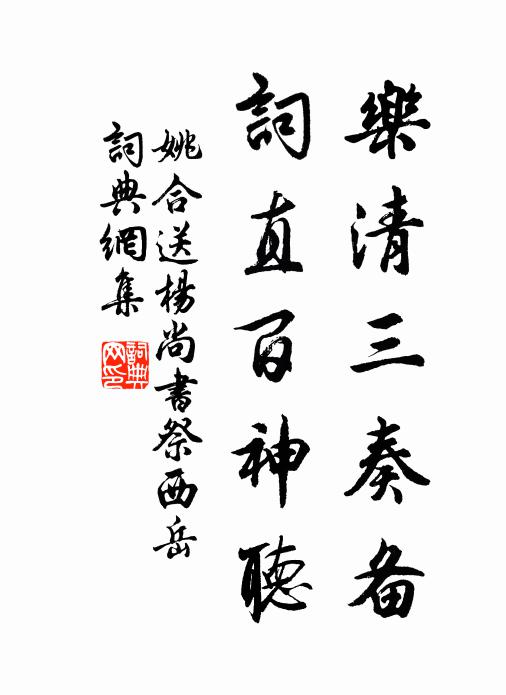 樂清三奏备
詞直百神聽
姚合送楊尚書祭西岳
詞典網集
詞典网印